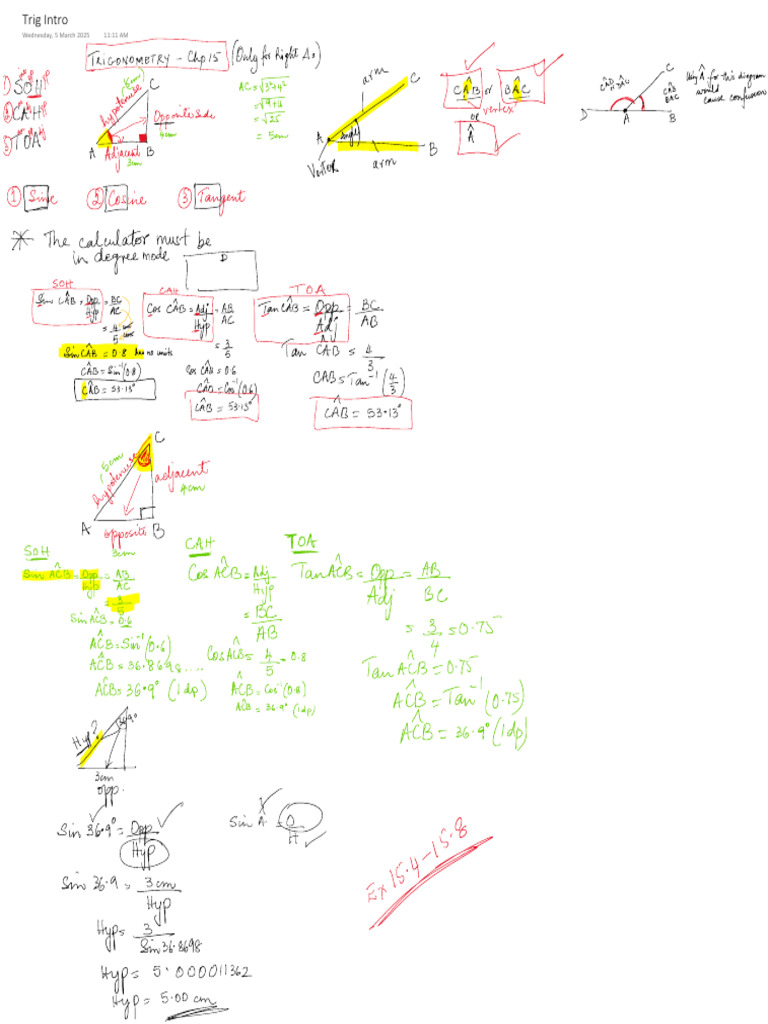 Trig Intro
Wednesday, 5 March 2025 11:11 AM
TRIGONOMETRY - Chp 15 (Only for Right Δs)
1) SOH
2) CAH
3) TOA
hypotenuse
(5cm)
C
Opposite side
4cm
A Adjacent B
3cm
AC = √3²+4²
= √9+16
= √25
= 5cm
arm
C
A
angle
B
arm
Vertex
CÂB or BÂC
vertex
or
Â
CÂD
= DÂC
C
CÂB
BÂC
D A B
Using Â for this diagram
would
cause confusion
① Sine ② Cosine ③ Tangent
* The calculator must be
in degree mode
D
SOH
Sin CÂB = Opp/Hyp = BC/AC
= 4 cm/5 cm
Sin CÂB = 0.8 has no units
CÂB = Sin⁻¹(0.8)
CÂB = 53.13°
CAH
Cos CÂB = Adj/Hyp = AB/AC
= 3/5
Cos CÂB = 0.6
CÂB = Cos⁻¹(0.6)
CÂB = 53.13°
TOA
Tan CÂB = Opp/Adj = BC/AB
Tan CÂB = 4/3
CÂB = Tan⁻¹(4/3)
CÂB = 53.13°
C
5cm
hypotenuse
adjacent
4cm
A opposite B
3cm
SOH
Sin AĈB = Opp/Hyp = AB/AC
= 3/5
Sin AĈB = 0.6
AĈB = Sin⁻¹(0.6)
AĈB = 36.8698....
AĈB = 36.9° (1dp)
CAH
Cos AĈB = Adj/Hyp
= BC/AB
Cos AĈB = 4/5 = 0.8
AĈB = Cos⁻¹(0.8)
AĈB = 36.9° (1dp)
TOA
Tan AĈB = Opp/Adj = AB/BC
= 3/4 = 0.75
Tan AĈB = 0.75
AĈB = Tan⁻¹(0.75)
AĈB = 36.9° (1dp)
Hyp?
36.9°
3cm
opp.
Sin 36.9° = Opp/Hyp
Sin 36.9 = 3cm/Hyp
Hyp = 3/Sin 36.8698
Hyp = 5.000011362
Hyp = 5.00 cm
Sin Â = O/H
Ex 15.4 - 15.8